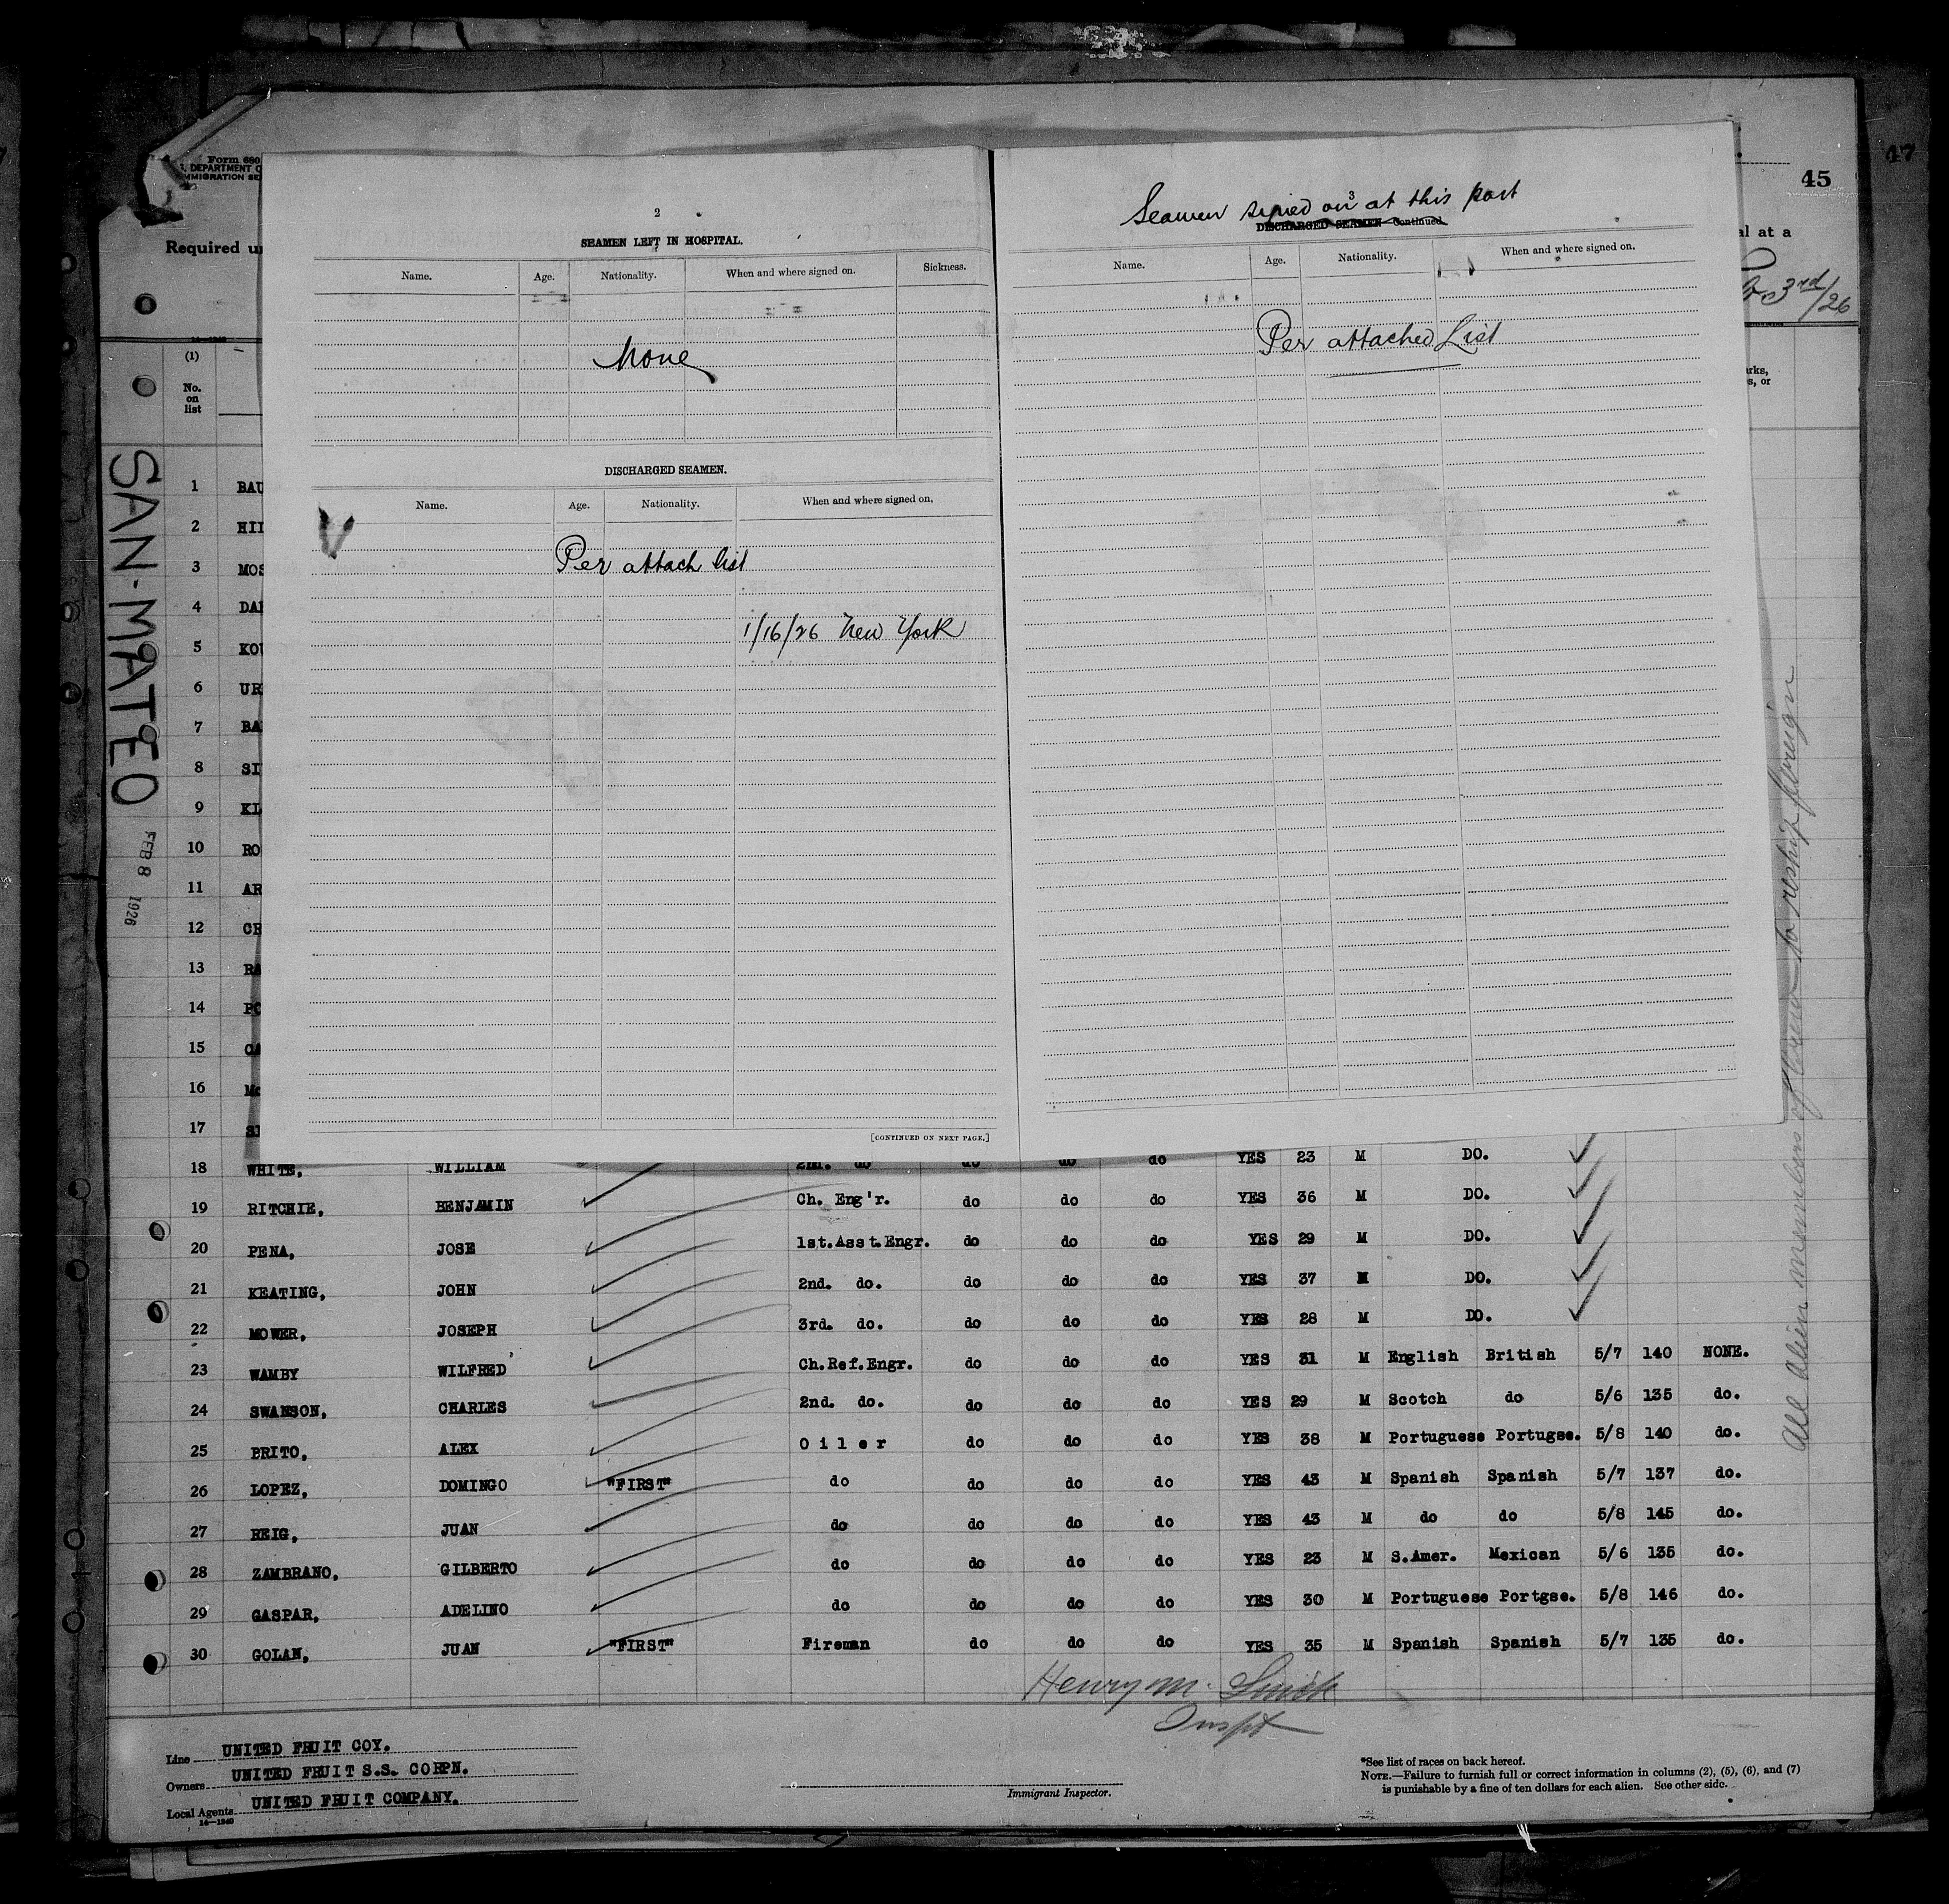 47
45
Form 680
DEPARTMENT
IMMIGRATION
Required
al at a
3rd/26
2
SEAMEN LEFT IN HOSPITAL.
Name. Age. Nationality. When and where signed on. Sickness.
None
DISCHARGED SEAMEN.
Name. Age. Nationality. When and where signed on.
Per attach list
1/16/26 New York
[CONTINUED ON NEXT PAGE.]
3
Seamen signed on at this port
DISCHARGED SEAMEN—Continued.
Name. Age. Nationality. When and where signed on.
Per attached List
(1)
No. on list
SAN-MATEO
FEB 8 1926
1 BAU
2 HIL
3 MOS
4
5
6 UR
7 BA
8 SI
9 KL
10 RO
11 AR
12
13 RA
14 PO
15 CA
16 Mc
17
18 WHITE, WILLIAM 2nd. do do do do YES 23 M DO.
19 RITCHIE, BENJAMIN Ch. Eng'r. do do do YES 36 M DO.
20 PENA, JOSE 1st.Asst.Engr. do do do YES 29 M DO.
21 KEATING, JOHN 2nd. do. do do do YES 37 M DO.
22 MOWER, JOSEPH 3rd. do. do do do YES 28 M DO.
23 WAMBY WILFRED Ch.Ref.Engr. do do do YES 31 M English British 5/7 140 NONE.
24 SWANSON, CHARLES 2nd. do. do do do YES 29 M Scotch do 5/6 135 do.
25 BRITO, ALEX Oiler do do do YES 38 M Portuguese Portugse. 5/8 140 do.
26 LOPEZ, DOMINGO "FIRST" do do do do YES 43 M Spanish Spanish 5/7 137 do.
27 REIG, JUAN do do do do YES 43 M do do 5/8 145 do.
28 ZAMBRANO, GILBERTO do do do do YES 23 M S.Amer. Mexican 5/6 135 do.
29 GASPAR, ADELINO do do do do YES 30 M Portuguese Portgse. 5/8 146 do.
30 GOLAN, JUAN "FIRST" Fireman do do do YES 35 M Spanish Spanish 5/7 135 do.
All Alien members of crew to reship foreign
Henry M. Smith
Inspt
Line UNITED FRUIT COY.
Owners UNITED FRUIT S.S. CORPN.
Local Agents UNITED FRUIT COMPANY.
14—1240
Immigrant Inspector.
*See list of races on back hereof.
NOTE.—Failure to furnish full or correct information in columns (2), (5), (6), and (7)
is punishable by a fine of ten dollars for each alien. See other side.